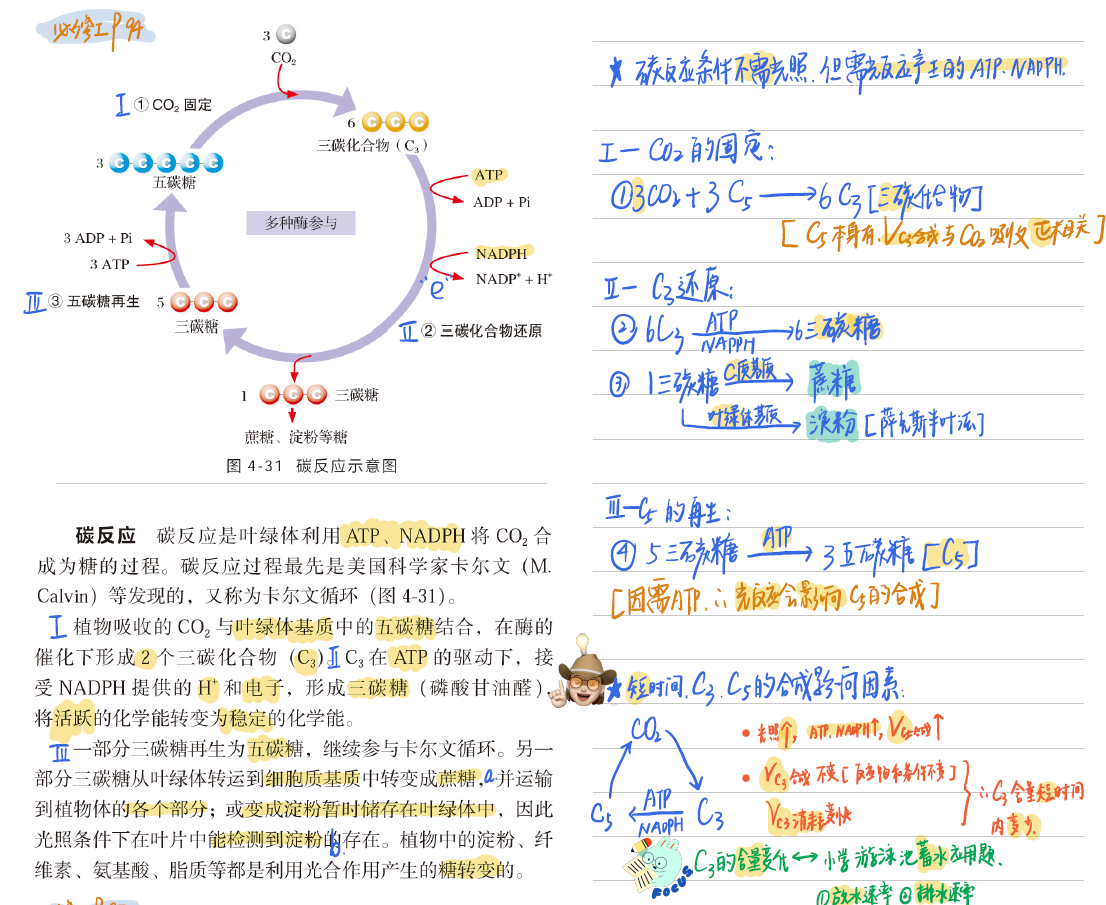 必修Ⅰ P94
3 C
CO₂
Ⅰ ① CO₂ 固定
6 C C C
三碳化合物（C₃）
3 C C C C C
五碳糖
ATP
ADP + Pi
多种酶参与
3 ADP + Pi
3 ATP
NADPH
NADP⁺ + H⁺
"e"
Ⅲ ③ 五碳糖再生 5 C C C
三碳糖
Ⅱ ② 三碳化合物还原
1 C C C 三碳糖
蔗糖、淀粉等糖
图 4-31 碳反应示意图
碳反应 碳反应是叶绿体利用 ATP、NADPH 将 CO₂ 合
成为糖的过程。碳反应过程最先是美国科学家卡尔文（M.
Calvin）等发现的，又称为卡尔文循环（图 4-31）。
Ⅰ 植物吸收的 CO₂ 与叶绿体基质中的五碳糖结合，在酶的
催化下形成 2 个三碳化合物（C₃）Ⅱ C₃ 在 ATP 的驱动下，接
受 NADPH 提供的 H⁺ 和电子，形成三碳糖（磷酸甘油醛），
将活跃的化学能转变为稳定的化学能。
Ⅲ 一部分三碳糖再生为五碳糖，继续参与卡尔文循环。另一
部分三碳糖从叶绿体转运到细胞质基质中转变成蔗糖，a 并运输
到植物体的各个部分；或变成淀粉暂时储存在叶绿体中，因此
光照条件下在叶片中能检测到淀粉的存在。植物中的淀粉、纤
b.
维素、氨基酸、脂质等都是利用光合作用产生的糖转变的。
★ 碳反应条件不需光照，但需光反应产生的ATP、NADPH.
Ⅰ— CO₂的固定：
① 3CO₂ + 3 C₅ ⟶ 6 C₃ [三碳化合物]
[ C₅本身有，V C₃合成与CO₂吸收正相关 ]
Ⅱ— C₃还原：
② 6C₃ ATP NADPH → 6三碳糖
③ 1三碳糖 C质基质 → 蔗糖
叶绿体基质 → 淀粉 [萨克斯半叶法]
Ⅲ—C₅的再生：
④ 5三碳糖 ATP → 3五碳糖 [C₅]
[因需ATP，∴光反应会影响C₅的合成]
★ 短时间，C₃、C₅的合成影响因素：
CO₂
C₅ ATP NADPH C₃
• 光照↑，ATP、NADPH↑，V C₅合成↑
• V C₃合成 不变 [反应物和条件不变]
V C₃消耗变快
∴ C₃含量短时间
内变少.
C₃的含量变化 ↔ 小学游泳池蓄水应用题.
FOCUS
①放水速率 ②排水速率